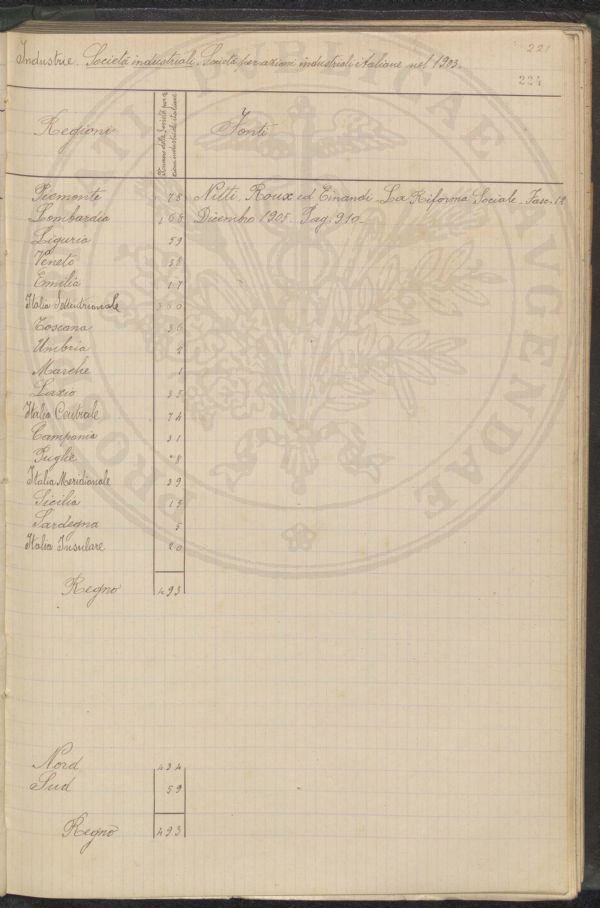 221
Industrie. Società industriali. Società per azioni industriali italiane nel 1903.
224
Regioni
Numero delle Società per azioni industriali italiane
Fonti
Piemonte 78 Nitti, Roux ed Einaudi - La Riforma Sociale - Fasc. 12
Lombardia 168 Dicembre 1905 - Pag. 910 -
Liguria 59
Veneto 38
Emilia 17
Italia Settentrionale 360
Toscana 36
Umbria 2
Marche 1
Lazio 35
Italia Centrale 74
Campania 31
Puglie 8
Italia Meridionale 39
Sicilia 15
Sardegna 5
Italia Insulare 20
Regno 493
Nord 434
Sud 59
Regno 493
PUBLICAE